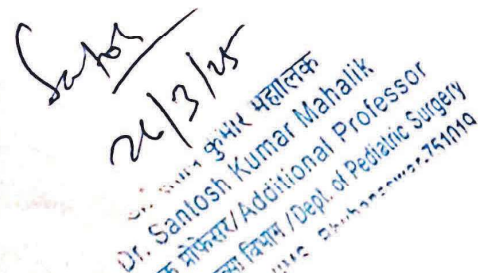 Santosh
26/3/25
कुमार महालिक
Dr. Santosh Kumar Mahalik
प्रोफेसर/Additional Professor
विभाग/Dept. of Pediatric Surgery
Bhubaneswar-751019